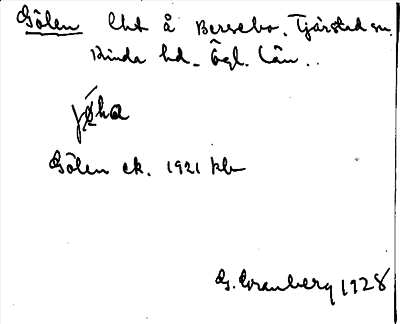 Gölen lht å Bersebo. Tjärstad sn
Kinda hd. Ögl. län..
jøka
Gölen ek. 1921 kb
G. Granberg 1928